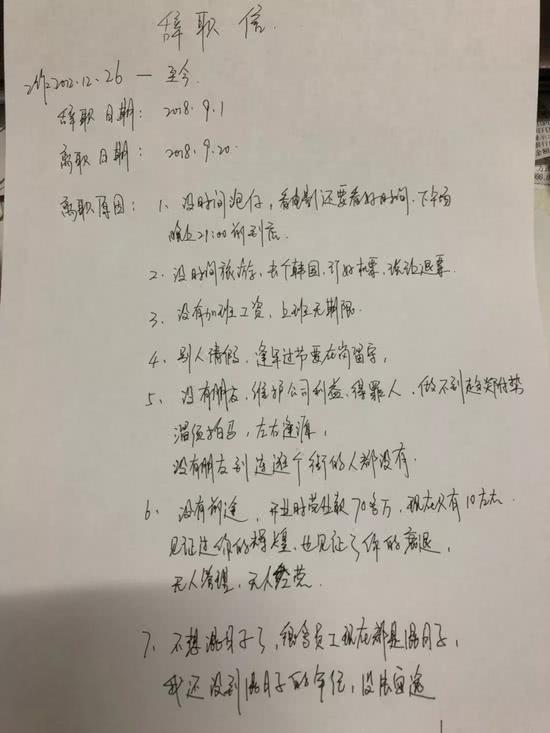 辞职信
2012.12.26 — 至今
辞职日期: 2018.9.1
离职日期: 2018.9.20
离职原因: 1、没时间泡仔, 看电影还要看好时间, 下午场
晚上21:00前到底.
2、没时间旅游, 去个韩国, 订好机票, 被迫退票.
3、没有加班工资, 上班无期限.
4、别人请假, 逢年过节要在岗留守,
5、没有朋友, 维护公司利益, 得罪人, 做不到趋炎附势
溜须拍马, 左右逢源,
没有朋友到连逛个街的人都没有.
6、没有前途, 开业时营业款70多万, 现在只有10左右.
见证过你的辉煌, 也见证了你的衰退,
无人管理, 无人经营.
7、不想混日子了, 很多员工现在都是混日子,
我还没到混日子的年纪, 没法面对